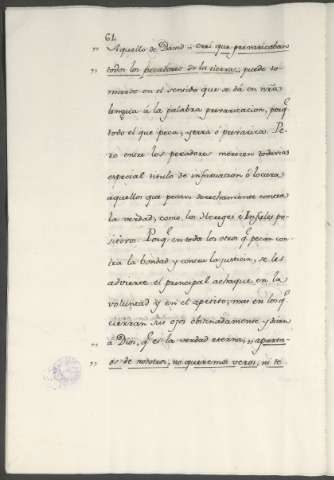 61.
" Aquello de David = creí que prevaricaban
" todos los pecadores de la tierra, puede to-
marse en el sentido que se dá en nrã
lengua á la palabra prevaricacion, porq̃
todo el que peca, yerra ó prevarica. Pe-
ro entre los pecadores merecen todavia
especial titulo de insensatez ó locura
aquellos que pecan derechamente contra
la verdad, como los Hereges é Infieles po-
sitivos. Porq̃ en todos los otros q̃ pecan con-
tra la bondad y contra la justicia, se les
advierte el principal achaque en la
voluntad y en el apetito; mas en los q̃
cierran sus ojos obstinadamente y dicen
" á Dios, q̃ es la verdad eterna, = aparta-
" os de nosotros, no queremos veros, ni te-